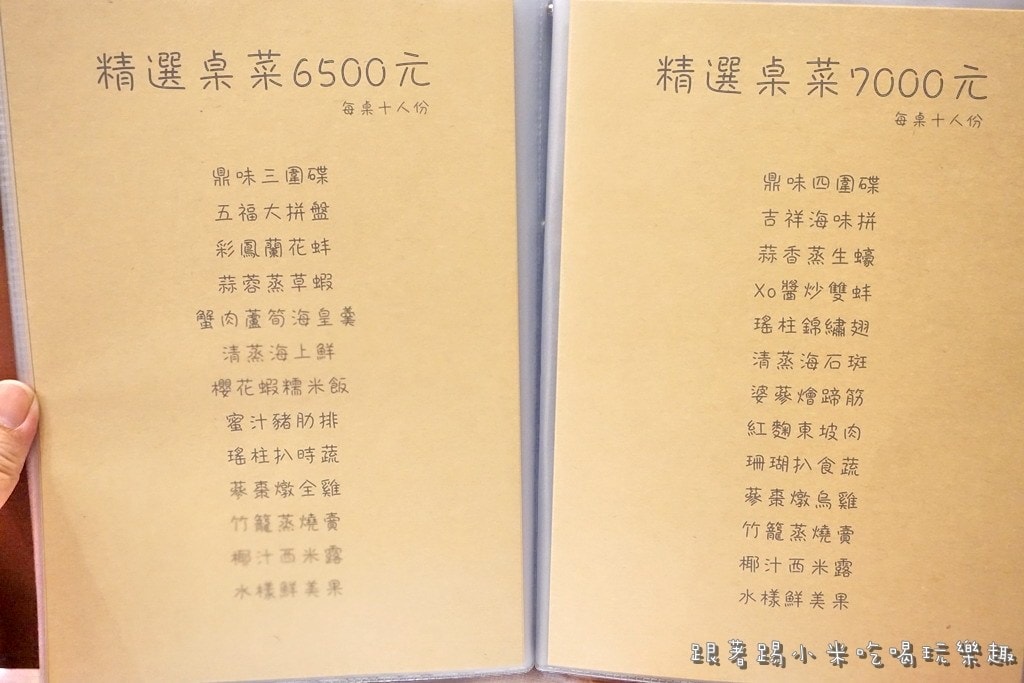 精選桌菜6500元
每桌十人份
鼎味三圍碟
五福大拼盤
彩鳳蘭花蚌
蒜蓉蒸草蝦
蟹肉蘆筍海皇羹
清蒸海上鮮
櫻花蝦糯米飯
蜜汁豬肋排
瑤柱扒時蔬
蔘棗燉全雞
竹籠蒸燒賣
椰汁西米露
水樣鮮美果
精選桌菜7000元
每桌十人份
鼎味四圍碟
吉祥海味拼
蒜香蒸生蠔
Xo醬炒雙蚌
瑤柱錦繡翅
清蒸海石斑
婆蔘燴蹄筋
紅麴東坡肉
珊瑚扒食蔬
蔘棗燉烏雞
竹籠蒸燒賣
椰汁西米露
水樣鮮美果
跟著踢小米吃喝玩樂趣